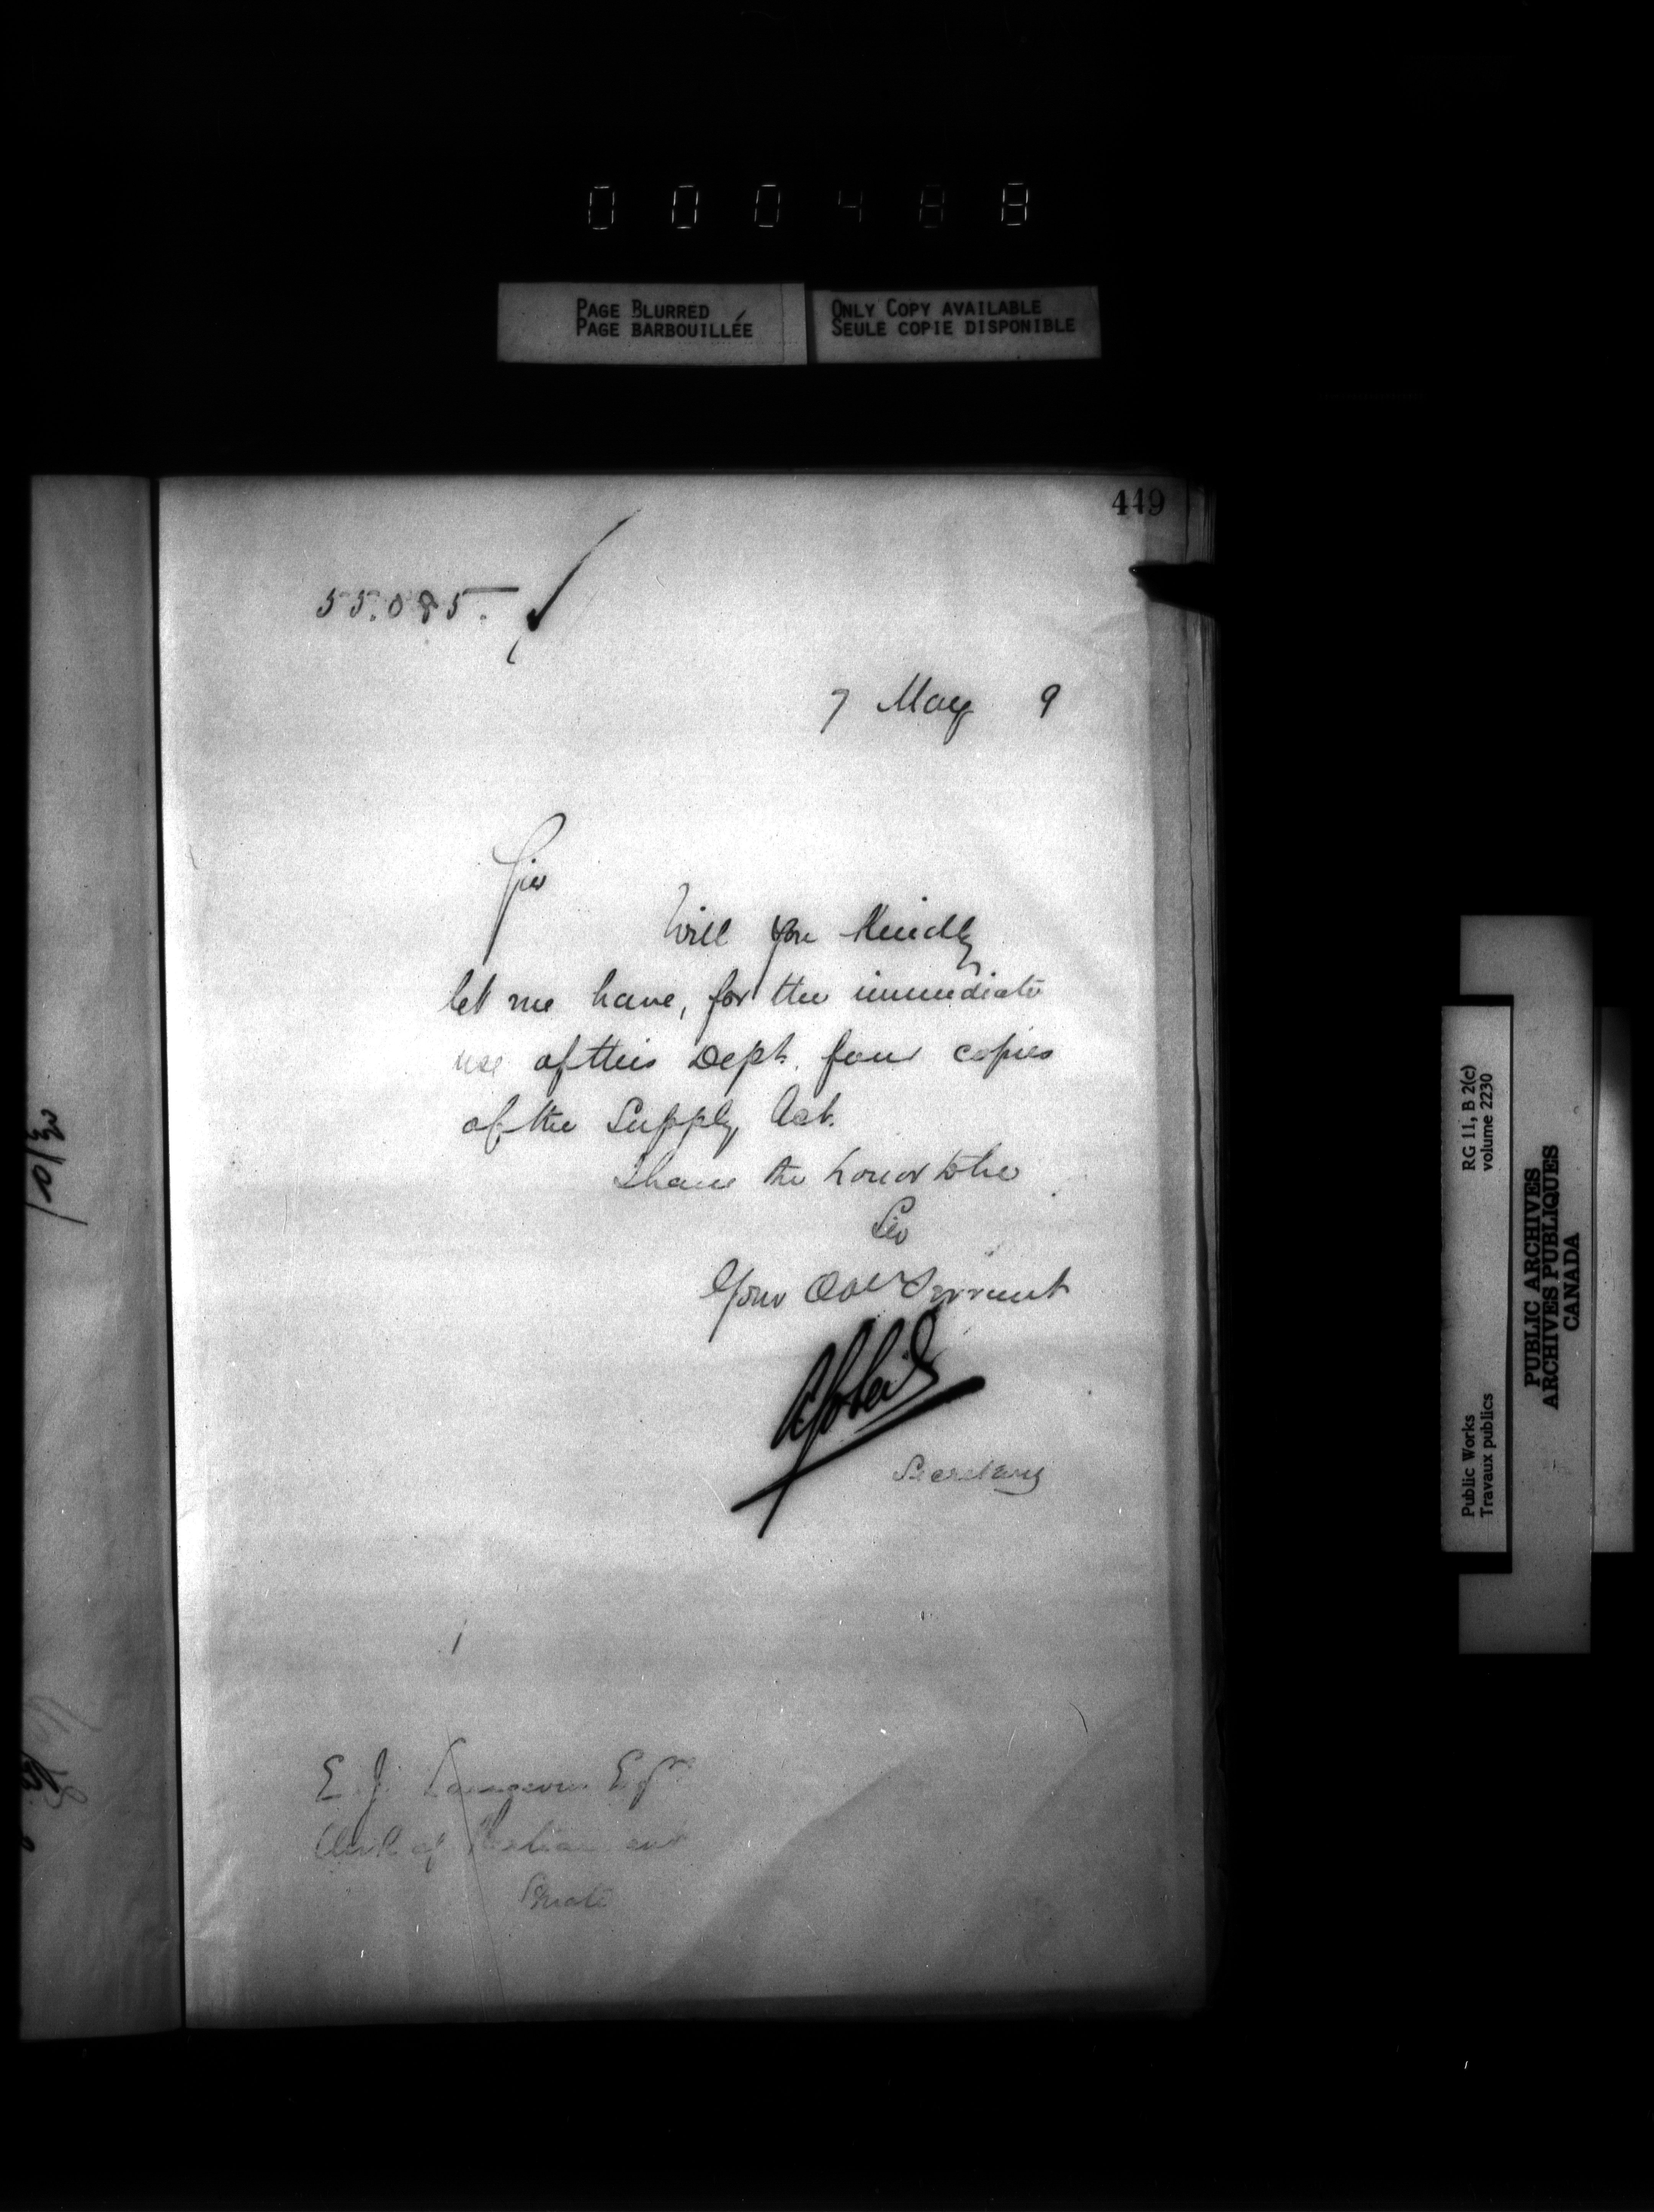 000488
PAGE BLURRED
PAGE BARBOUILLÉE
ONLY COPY AVAILABLE
SEULE COPIE DISPONIBLE
449
55.085.
7 May 9
Sir
Will you kindly
let me have, for the immediate
use of this Dept. four copies
of the Supply Act.
I have the honor to be
Sir
Your Obt Servant
Secretary
E. J. Langevin Esqre
Clerk of Parliament
Senate
RG 11, B 2(c)
volume 2230
Public Works
Travaux publics
PUBLIC ARCHIVES
ARCHIVES PUBLIQUES
CANADA